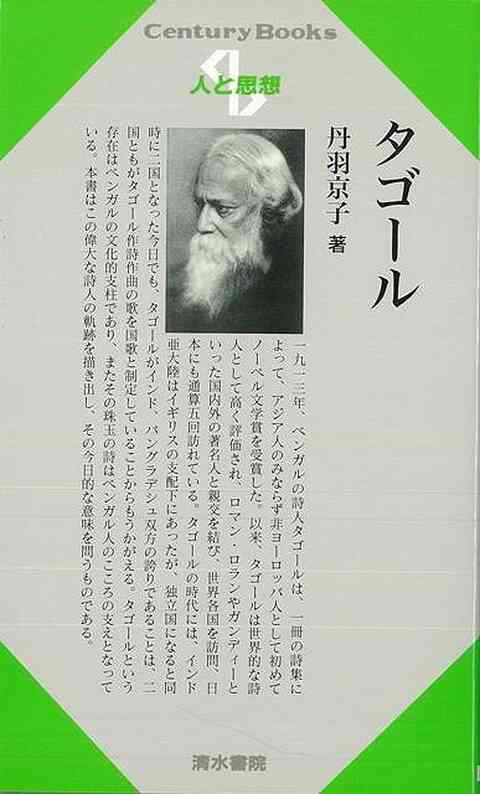 Century Books
人と思想
タゴール
丹羽京子 著
一九一三年、ベンガルの詩人タゴールは、一冊の詩集に
よって、アジア人のみならず非ヨーロッパ人として初めて
ノーベル文学賞を受賞した。以来、タゴールは世界的な詩
人として高く評価され、ロマン・ロランやガンディーと
いった国内外の著名人と親交を結び、世界各国を訪問、日
本にも通算五回訪れている。タゴールの時代には、インド
亜大陸はイギリスの支配下にあったが、独立国になると同
時に二国となった今日でも、タゴールがインド、バングラデシュ双方の誇りであることは、二
国ともがタゴール作詩作曲の歌を国歌と制定していることからもうかがえる。タゴールという
存在はベンガルの文化的支柱であり、またその珠玉の詩はベンガル人のこころの支えとなって
いる。本書はこの偉大な詩人の軌跡を描き出し、その今日的な意味を問うものである。
清水書院